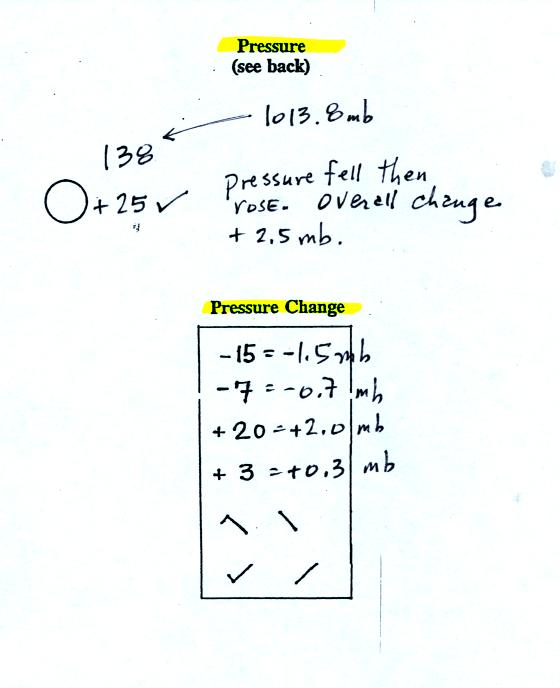 Pressure
(see back)
1013.8 mb
138
+ 25
Pressure fell then
rose. Overall change
+ 2.5 mb.
Pressure Change
-15 = -1.5 mb
-7 = -0.7 mb
+ 20 = +2.0 mb
+ 3 = +0.3 mb